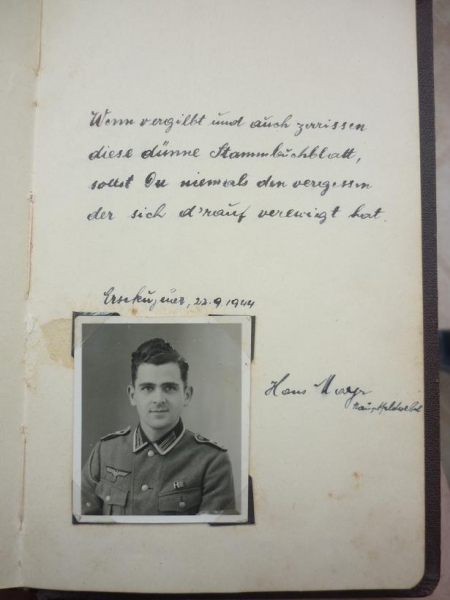 Wenn vergilbt und auch zerrissen
diese dünne Stammbuchblatt,
sollst Du niemals den vergessen
der sich d'rauf verewigt hat.
Ersekujvar, 22.9.1944
Hans